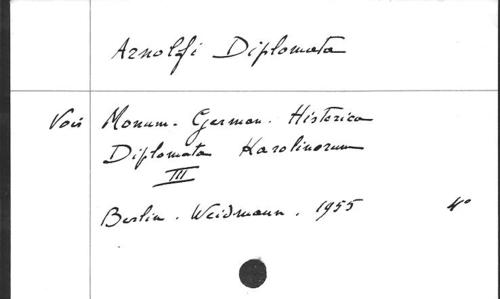 Arnolfi Diplomata
Voir Monum. German. Historica
Diplomata Karolinorum
III
Berlin. Weidmann. 1955 4°